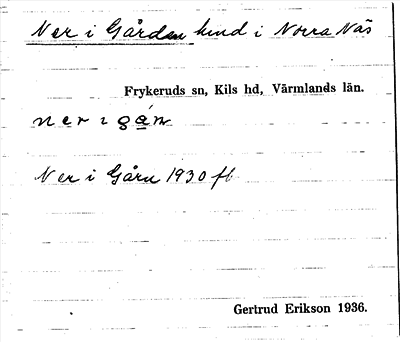 Ner i Gården hmd i Norra Näs
Frykeruds sn, Kils hd, Värmlands län.
Ner i Gårn 1930 fl.
Gertrud Erikson 1936.